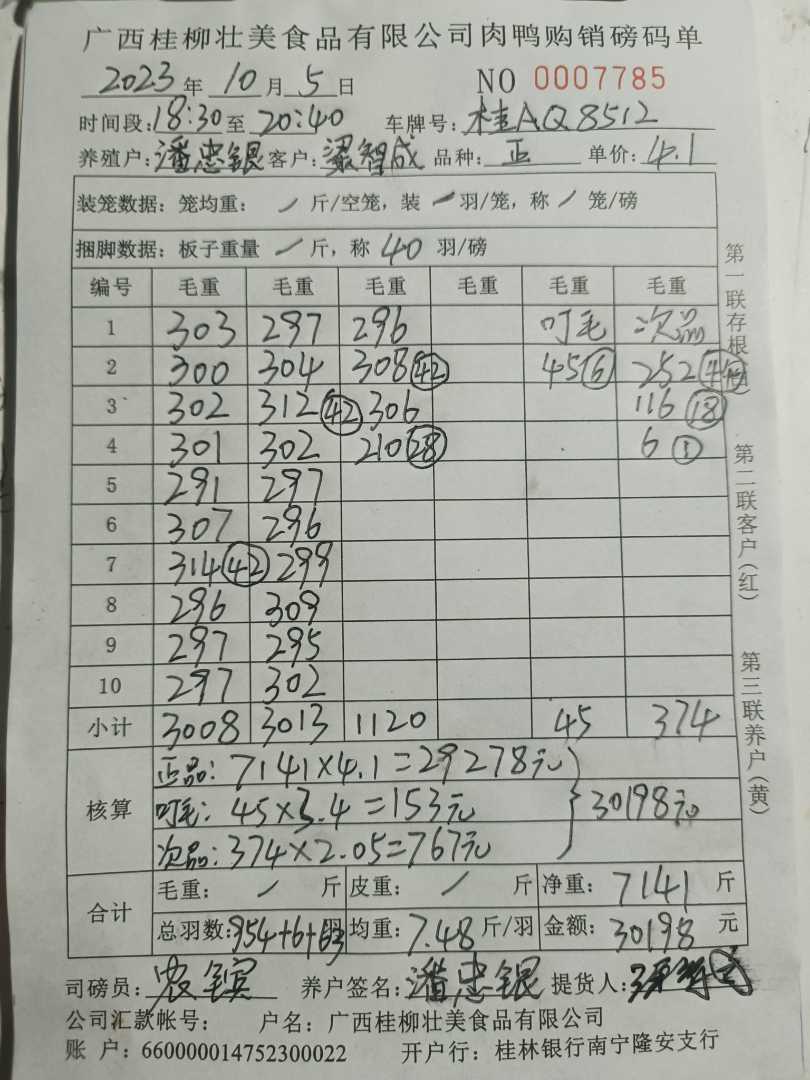 广西桂柳壮美食品有限公司肉鸭购销磅码单
2023年10月5日 NO 0007785
时间段:18:30至20:40 车牌号:桂AQ8512
养殖户:潘忠银 客户:梁智成 品种:正 单价:4.1
装笼数据：笼均重：/斤/空笼，装/羽/笼，称/笼/磅
捆脚数据：板子重量/斤，称40羽/磅
编号 毛重 毛重 毛重 毛重 毛重 毛重
1 303 297 296 叮毛 次品
2 300 304 308 42 45 6 252 44
3 302 312 42 306 116 18
4 301 302 210 28 6 1
5 291 297
6 307 296
7 314 42 299
8 296 309
9 297 295
10 297 302
小计 3008 3013 1120 45 374
正品：7141×4.1=29278元
核算 叮毛：45×3.4=153元 30198元
次品：374×2.05=767元
合计 毛重：/斤 皮重：/斤 净重：7141斤
总羽数:954+6+63羽 均重：7.48斤/羽 金额：30198元
司磅员: 养户签名:潘忠银 提货人:
公司汇款帐号： 户名：广西桂柳壮美食品有限公司
账 户：660000014752300022 开户行：桂林银行南宁隆安支行
第一联存根
第二联客户(红)
第三联养户(黄)